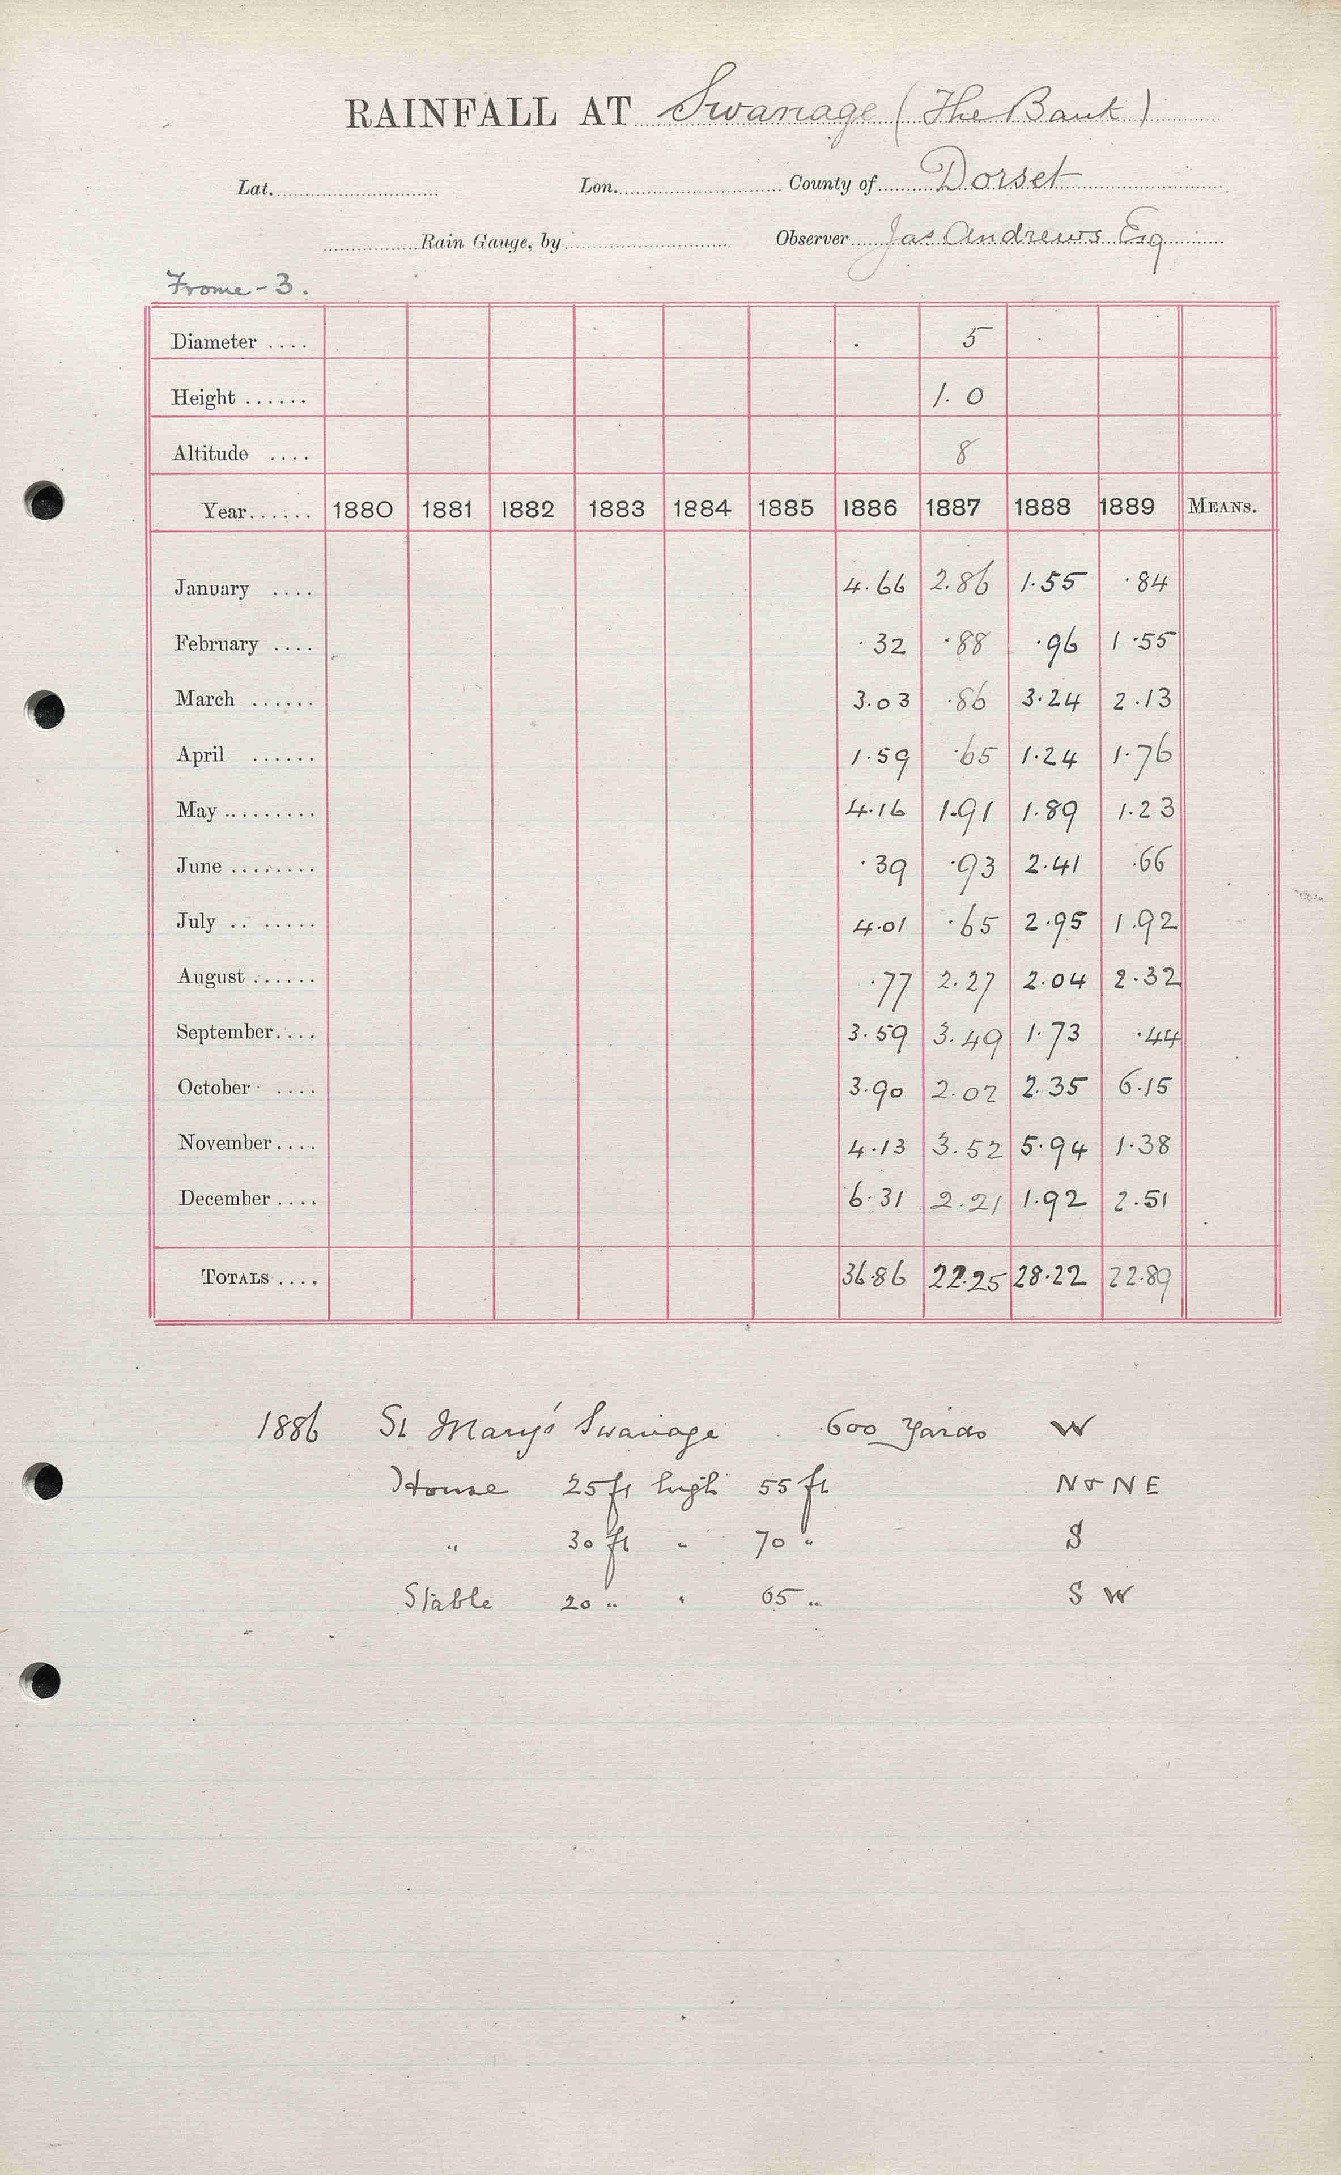 RAINFALL AT Swanage (The Bank)
Lat. Lon. County of Dorset
Rain Gauge, by Observer Jas Andrews Esq
Frome - 3.
Diameter .... 5
Height ...... 1.0
Altitude .... 8
Year...... 1880 1881 1882 1883 1884 1885 1886 1887 1888 1889 MEANS.
January .... 4.66 2.86 1.55 .84
February .... .32 .88 .96 1.55
March ...... 3.03 .86 3.24 2.13
April ...... 1.59 .65 1.24 1.76
May ......... 4.16 1.91 1.89 1.23
June ........ .39 .93 2.41 .66
July .. ..... 4.01 .65 2.95 1.92
August ...... .77 2.27 2.04 2.32
September.... 3.59 3.49 1.73 .44
October .... 3.90 2.02 2.35 6.15
November.... 4.13 3.52 5.94 1.38
December.... 6.31 2.21 1.92 2.51
TOTALS .... 36.86 22.25 28.22 22.89
1886 St Mary's Swanage 600 yards W
House 25 ft high 55 ft N & NE
" 30 ft " 70 " S
Stable 20 " " 65 " S W